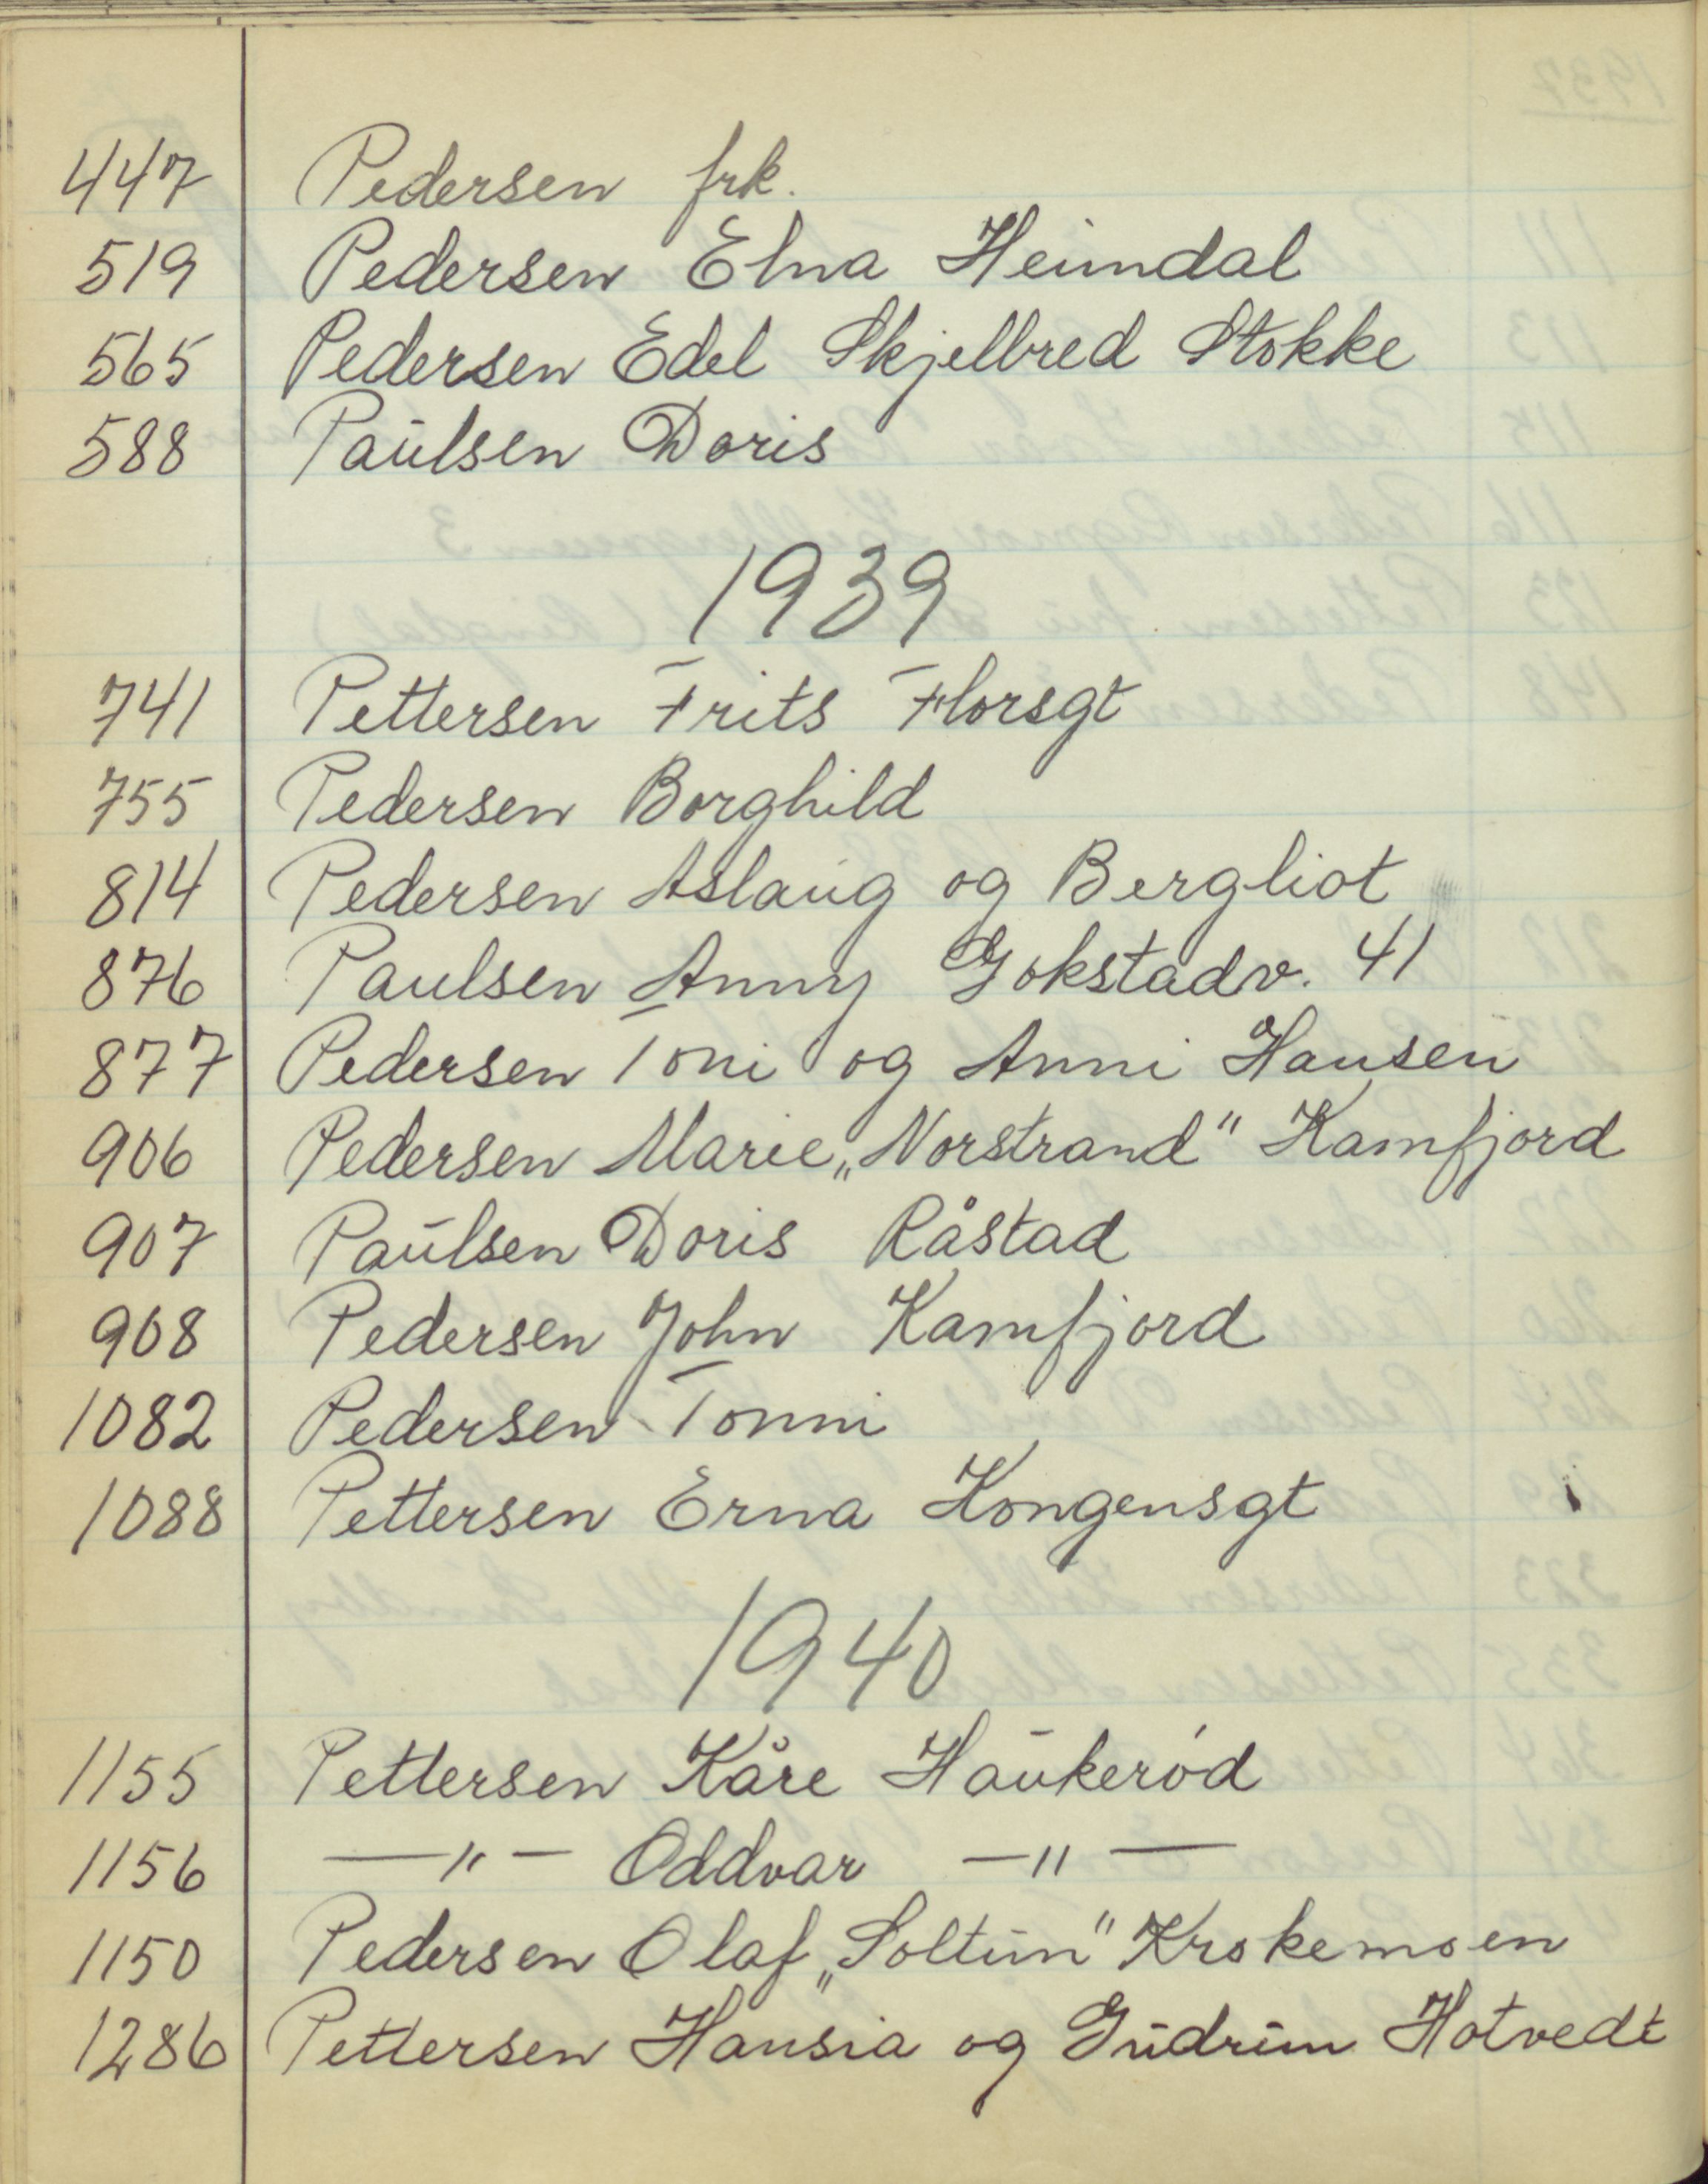 447 Pedersen frk.
519 Pedersen Elna Heimdal
565 Pedersen Edel Skjelbred Stokke
588 Paulsen Doris
1939
741 Pettersen Frits Florsgt
755 Pedersen Borghild
814 Pedersen Aslaug og Bergliot
876 Paulsen Anny Gokstadv. 41
877 Pedersen Toni og Anni Hansen
906 Pedersen Marie „Norstrand" Kamfjord
907 Paulsen Doris Råstad
908 Pedersen John Kamfjord
1082 Pedersen Tonni
1088 Pettersen Erna Kongensgt
1940
1155 Pettersen Kåre Haukerød
1156 —"— Oddvar —"—
1150 Pedersen Olaf „Soltun" Krokemoen
1286 Pettersen Hansia og Gudrun Hotvedt